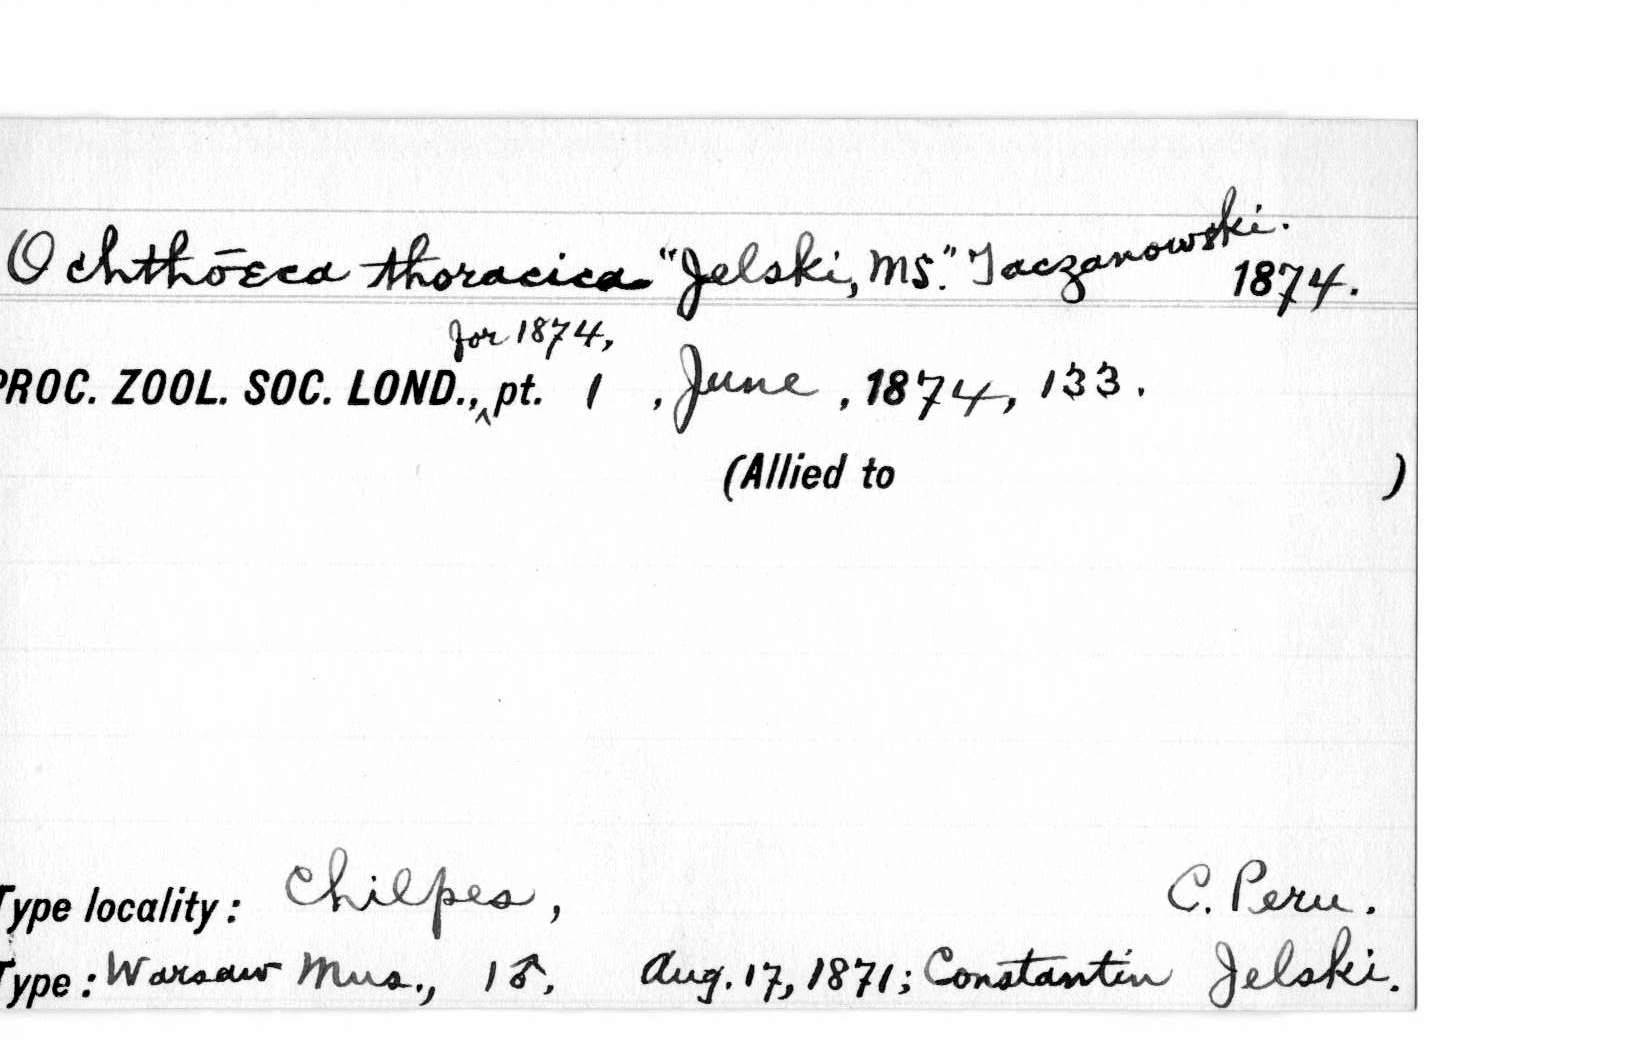 Ochthōeca thoracica "Jelski, MS." Taczanowski. 1874.
for 1874,
PROC. ZOOL. SOC. LOND.,^ pt. 1 , June , 1874, 133.
(Allied to )
Type locality: Chilpes, C. Peru.
Type: Warsaw Mus., 1♂, Aug. 17, 1871; Constantin Jelski.